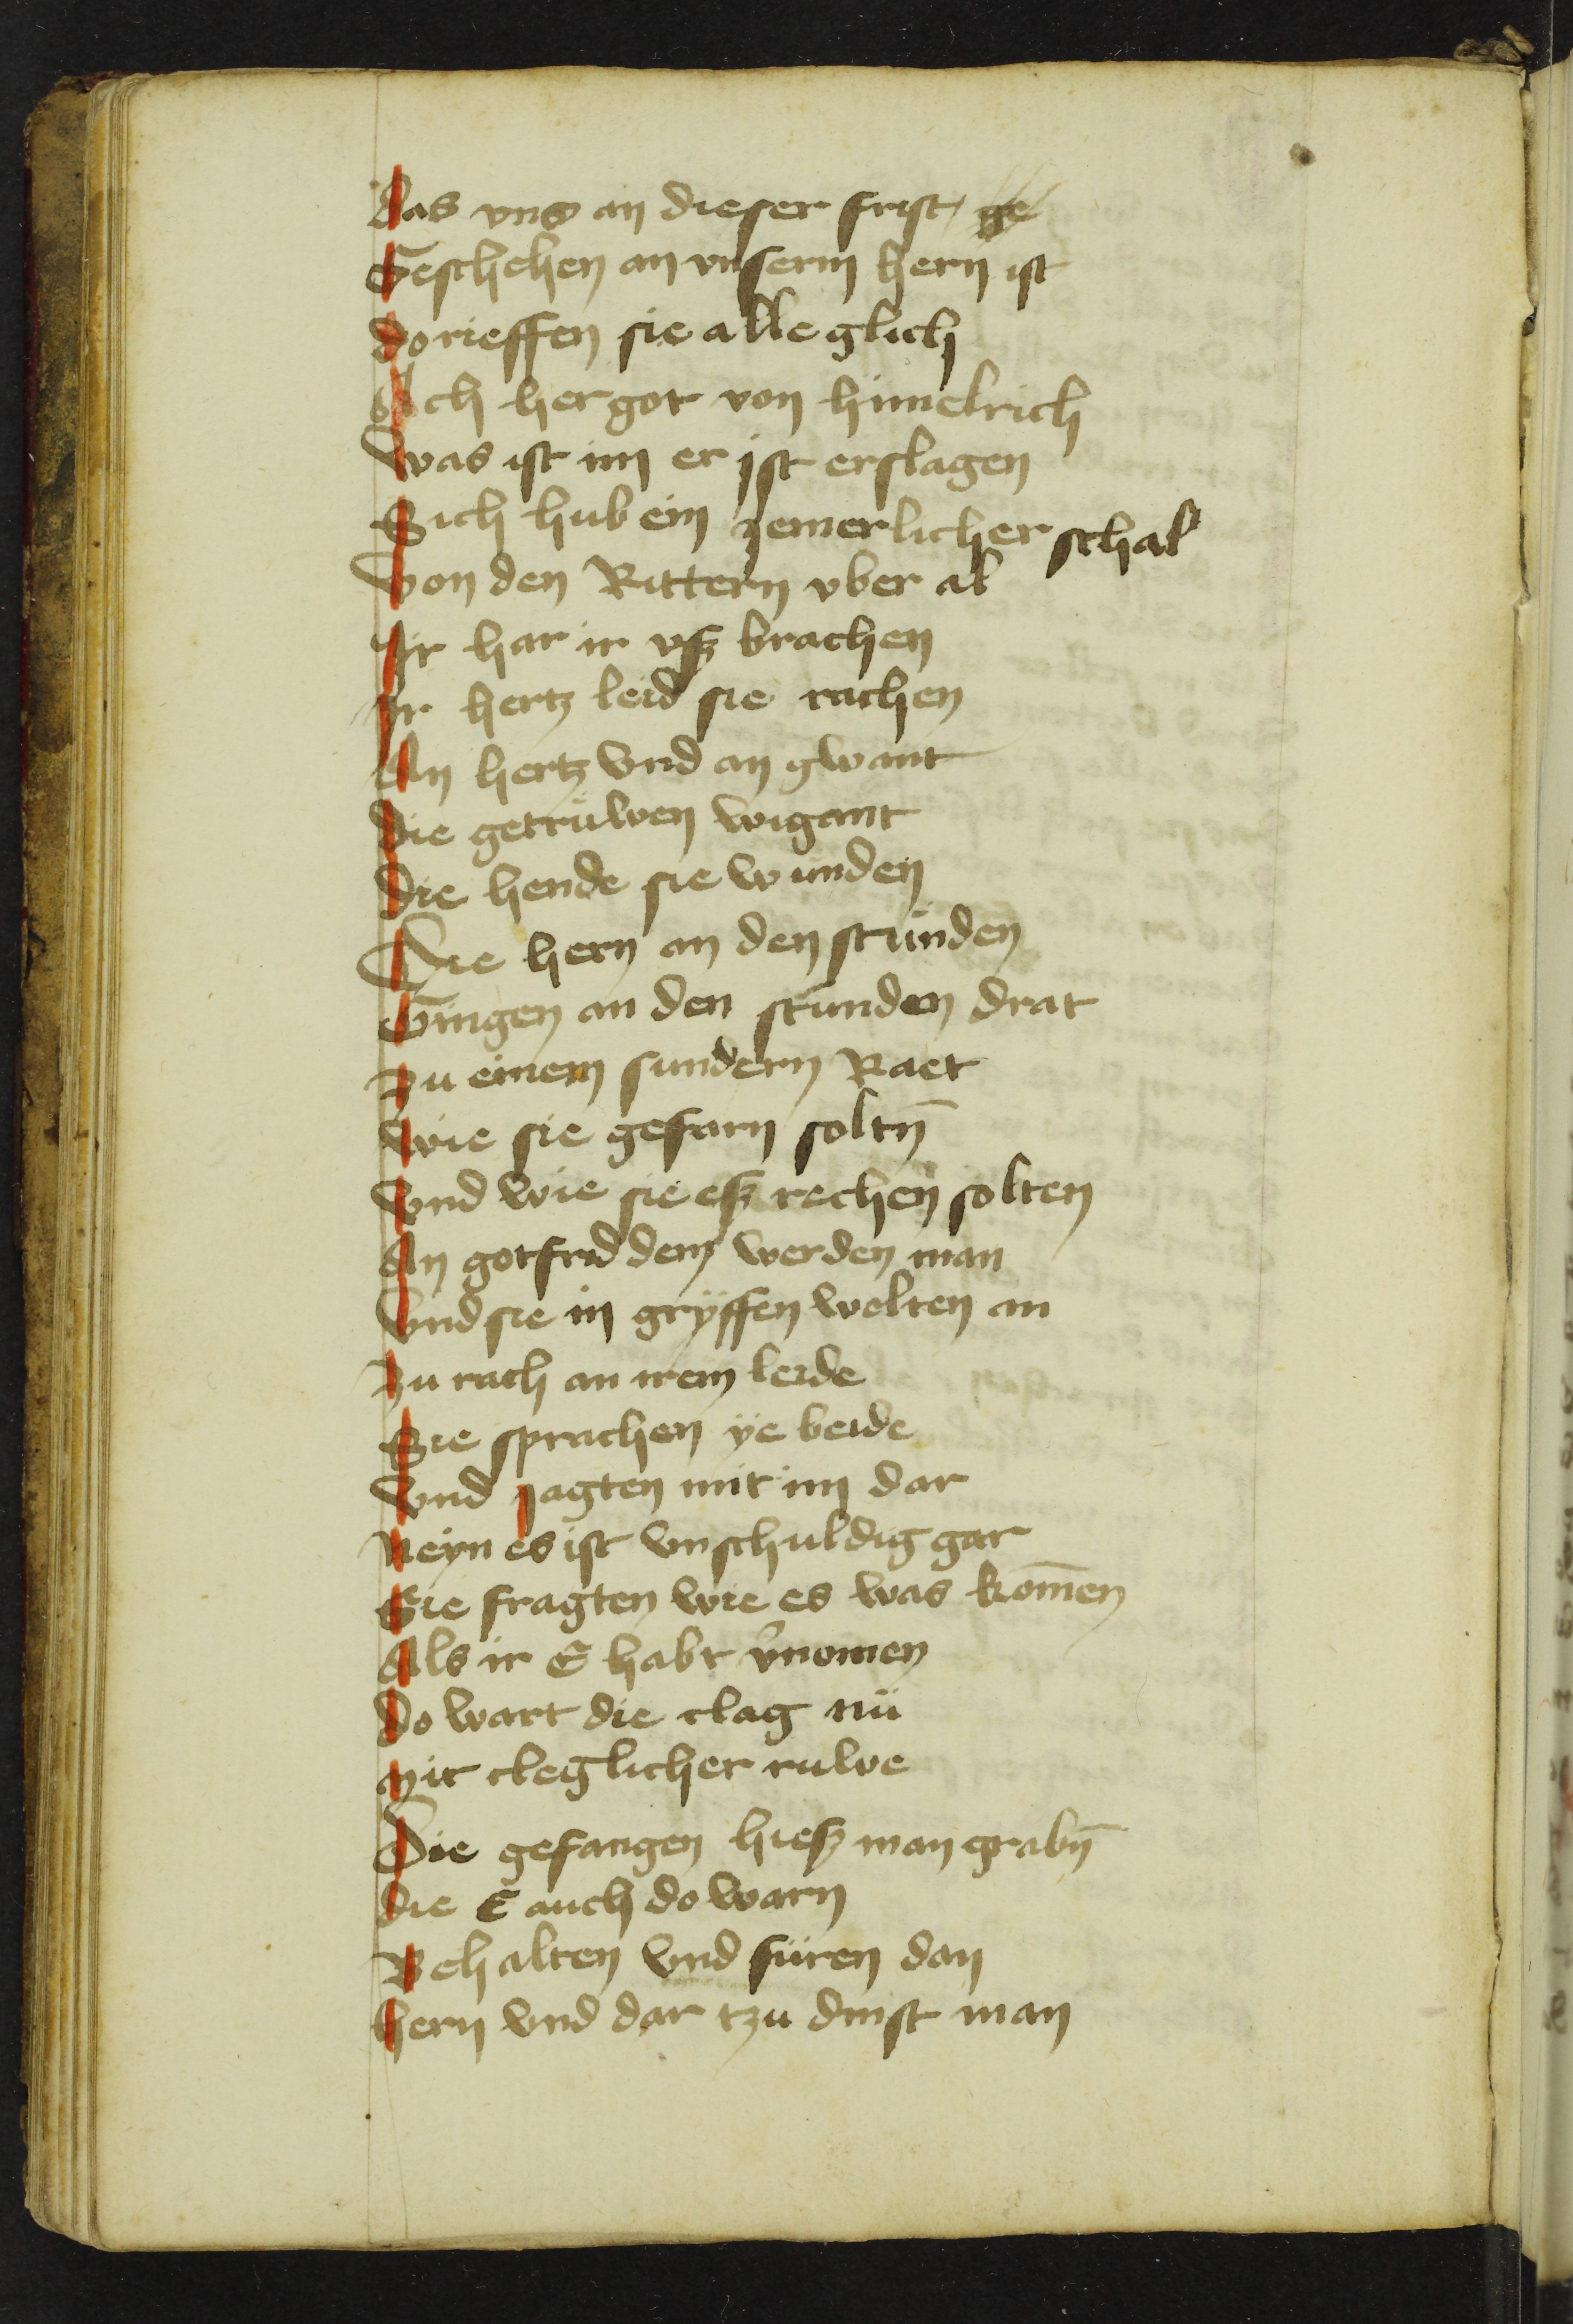 das vns an dieser frist ge
Geschehen an vnserm hern ist
do rieffen sie alle glich
Ach her got von himelrich
Was ist im er ist erslagen
Sich hub ein jemerlicher schal
Von den Rittern vber al
Ir har ir vsz brachen
Ir hertz leid sie rachen
An hertz vnd an gwant
die getrüwen wigant
die hende sie wunden
Die hern an den stünden
Gingen an den stunden drat
zu einem sundern Raet
Wie sie gefarn soltn̄
vnd wie sie esz rechen solten
An gotfrid dem werden man
vnd sie in gryffen wolten an
zu rach an irem leide
Sie sprachen ye beide
vnd jagten mit im dar
Neyn es ist vnschuldig gar
Sie fragten wie es was kom̄en
Als ir E habt v̾nomen
do wart die clag nü
mit cleglicher ruwe
Die gefangen hiesz man grabn̄
die E auch do warn
Behalten vnd füren dan
hern vnd dar tzu dinst man